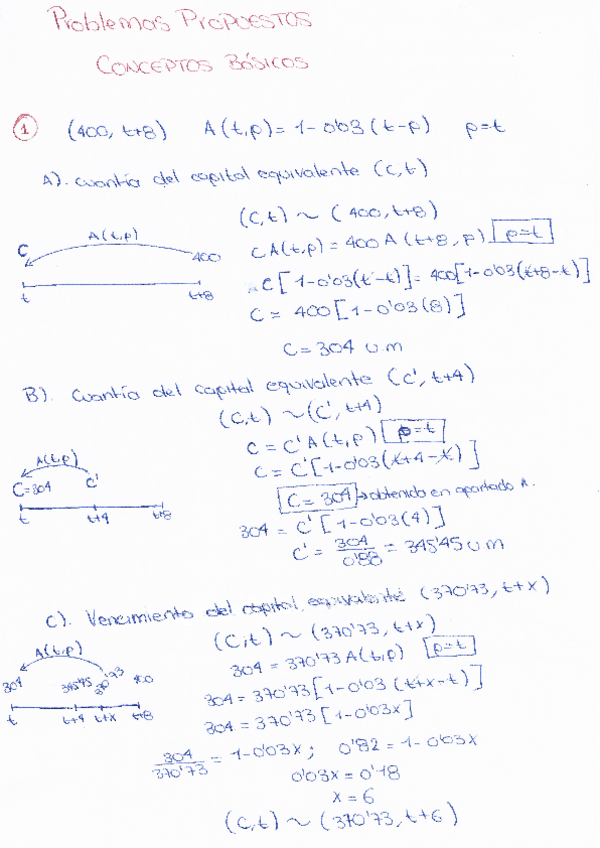 Problemas PROPUESTOS
CONCEPTOS BÁSICOS
1 (400, t+8) A(t,p) = 1-0'03(t-p) p=t
A). cuantía del capital equivalente (C,t)
(C,t) ~ (400, t+8)
C A(t,p) = 400 A(t+8, p) p=t
C[1-0'03(t-t)] = 400[1-0'03(t+8-t)]
C = 400[1-0'03(8)]
C = 304 u.m
C A(t,p) 400
t t+8
B). Cuantía del capital equivalente (C', t+4)
(C,t) ~ (C', t+4)
C = C' A(t,p) p=t
C = C'[1-0'03(t+4-t)]
C = 304 → obtenido en apartado A.
304 = C'[1-0'03(4)]
C' = 304/0'88 = 345'45 u m
A(t,p)
C=304 C'
t t+4 t+8
C). Vencimiento del capital equivalente (370'73, t+x)
(C,t) ~ (370'73, t+x)
304 = 370'73 A(t,p) p=t
304 = 370'73[1-0'03(t+x-t)]
304 = 370'73[1-0'03x]
304/370'73 = 1-0'03x; 0'82 = 1-0'03x
0'03x = 0'18
x = 6
(C,t) ~ (370'73, t+6)
A(t,p)
304 345'45 370'73 400
t t+4 t+x t+8